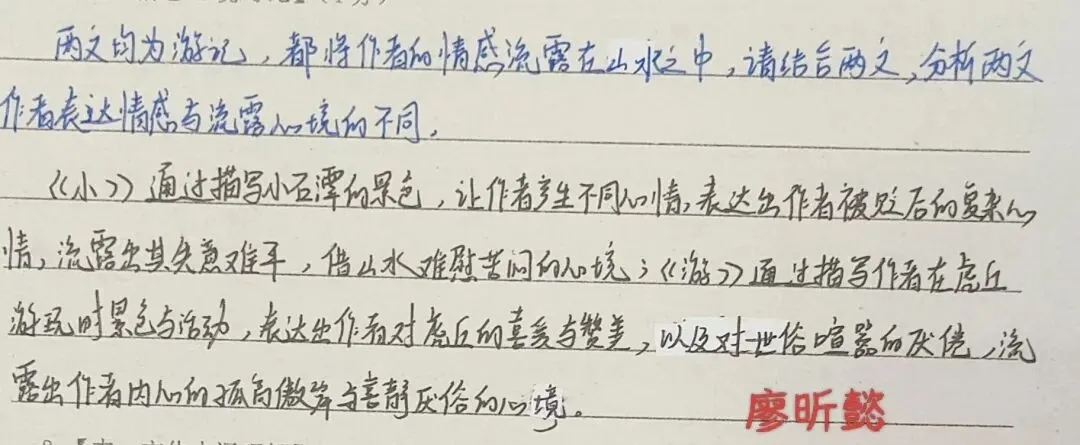 两文均为游记，都将作者的情感流露在山水之中，请结合两文，分析两文
作者表达情感与流露心境的不同。
《小》通过描写小石潭的景色，让作者产生不同心情，表达出作者被贬后的复杂心
情，流露出其失意难平，借山水难慰苦闷的心境；《游》通过描写作者在虎丘
游玩时景色与活动，表达出作者对虎丘的喜爱与赞美，以及对世俗喧嚣的厌倦，流
露出作者内心的孤高傲岸与喜静厌俗的心境。
廖昕懿